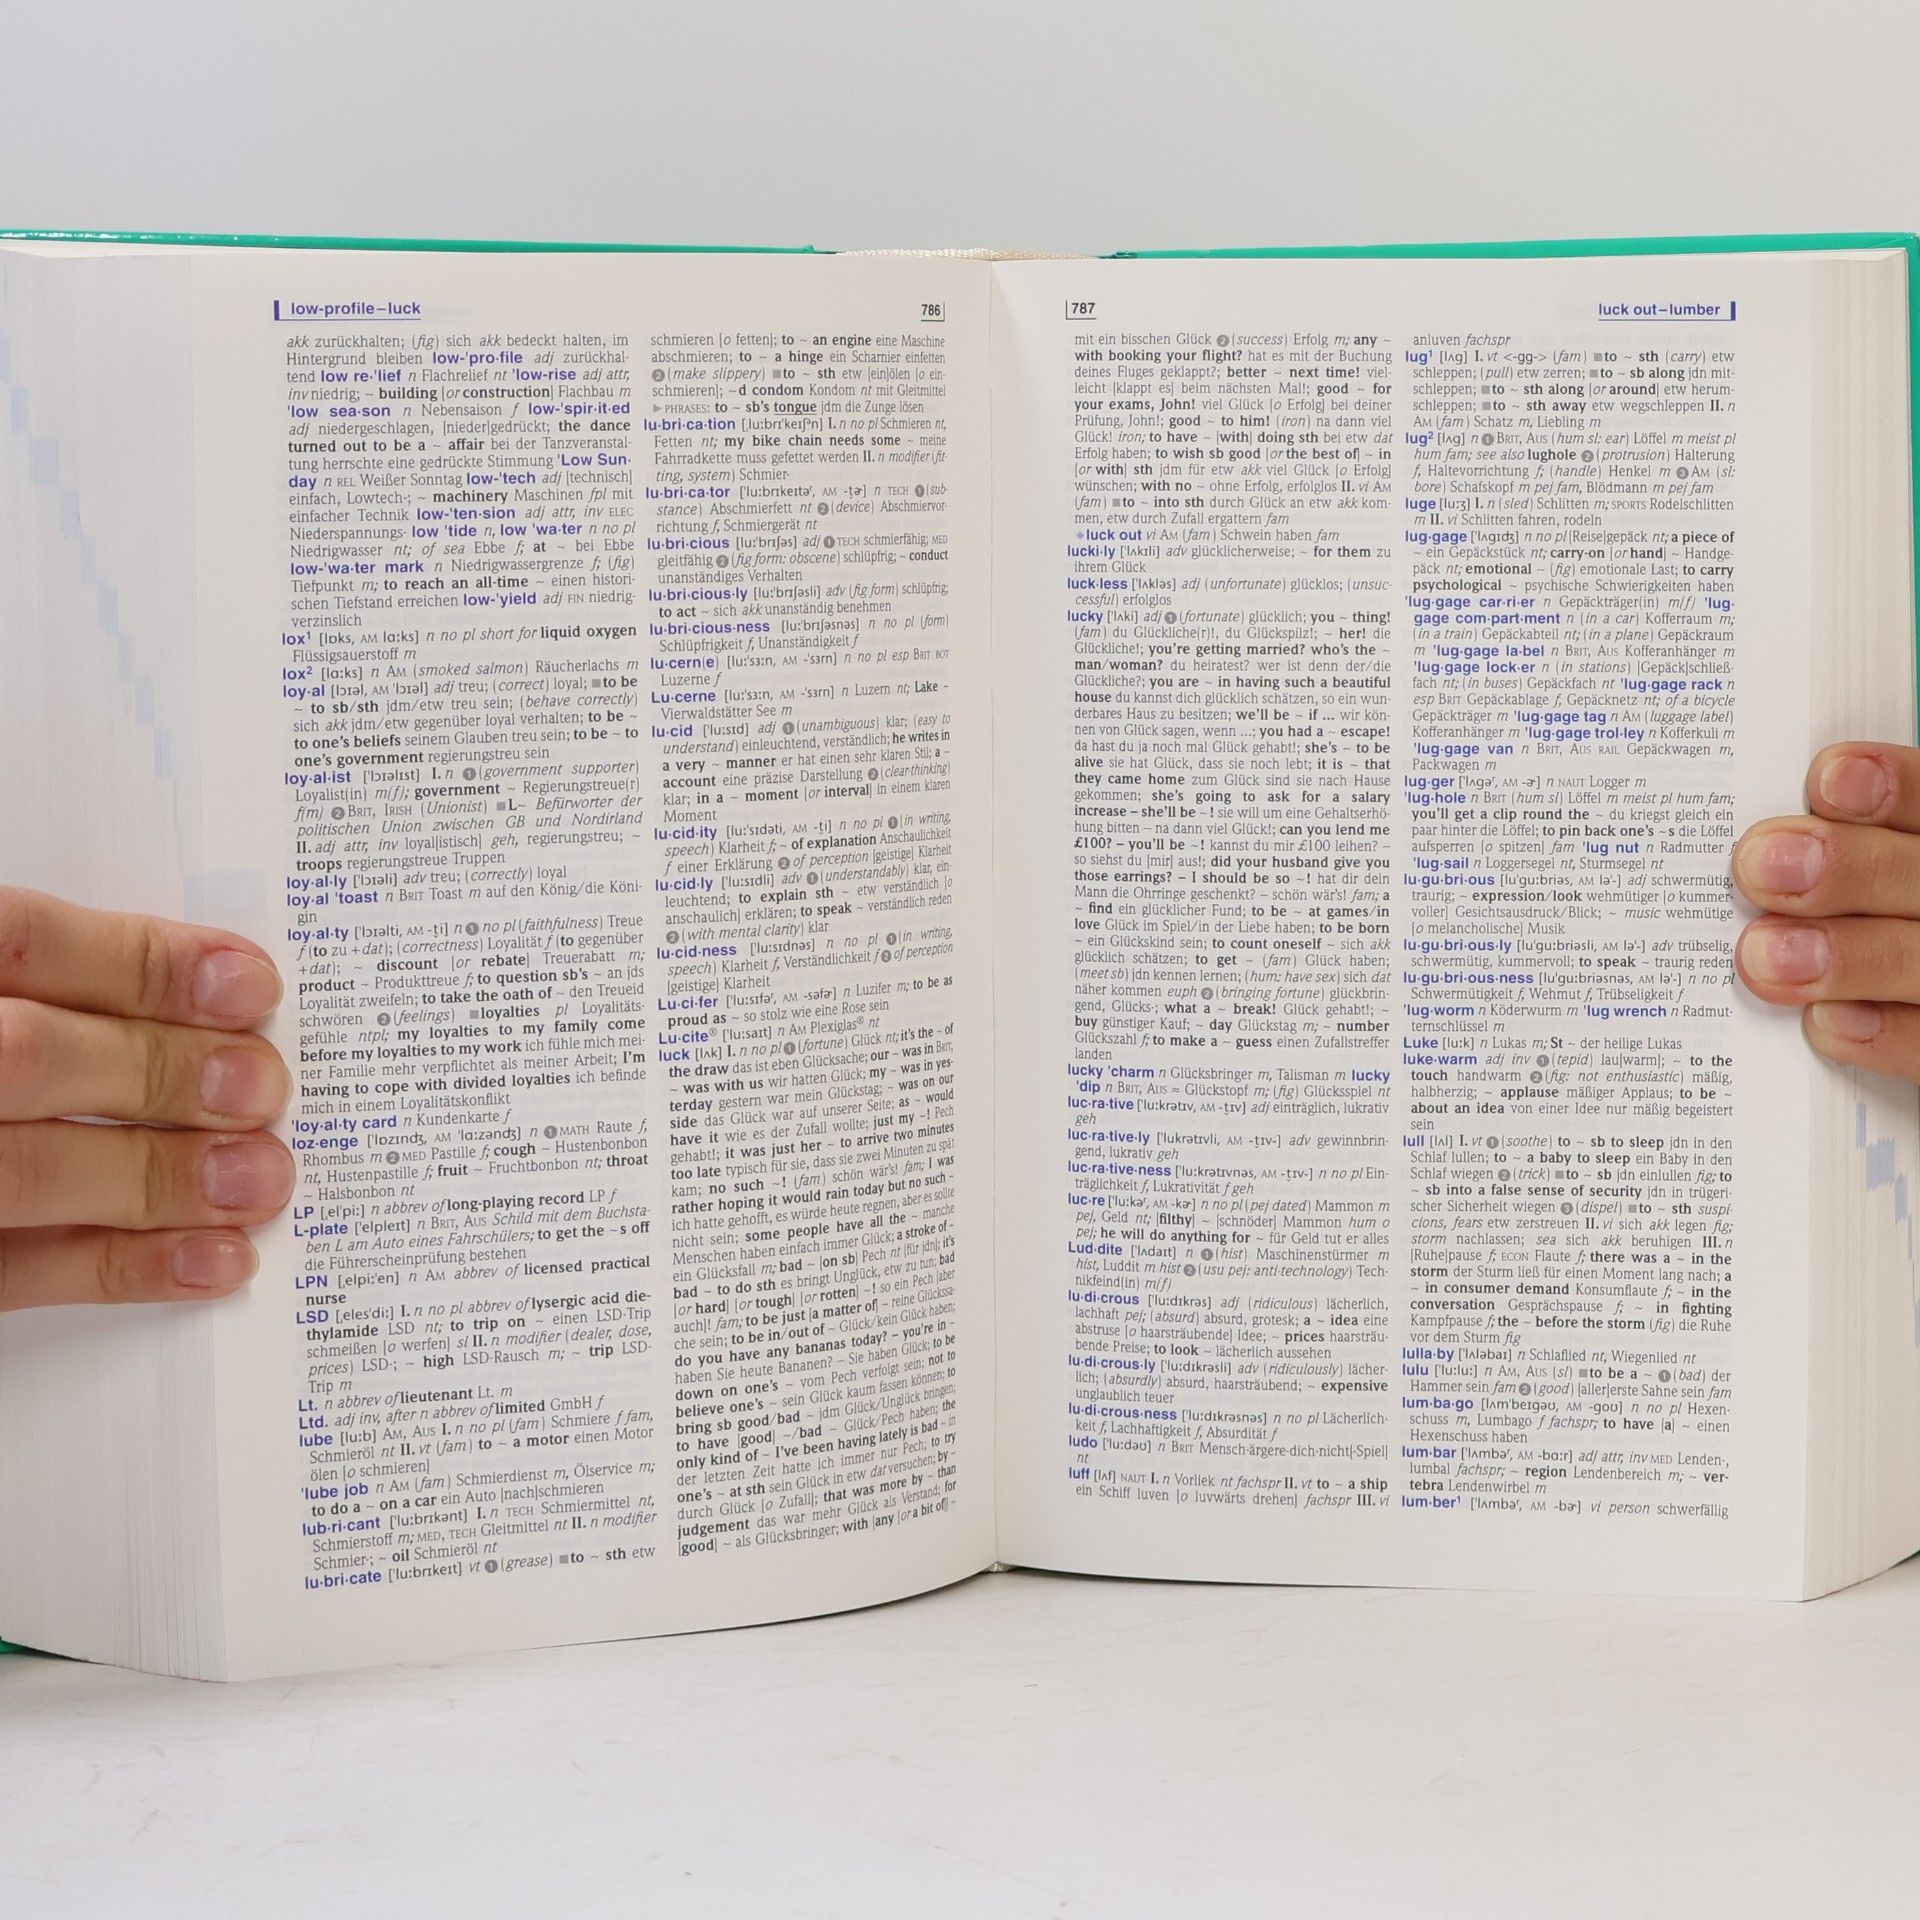 low-profile–luck
786
akk zurückhalten; (fig) sich akk bedeckt halten, im
Hintergrund bleiben low-'pro·file adj zurückhal-
tend low re·'lief n Flachrelief nt 'low-rise adj attr,
inv niedrig; ~ building [or construction] Flachbau m
'low sea·son n Nebensaison f low-'spir·it·ed
adj niedergeschlagen, [nieder]gedrückt; the dance
turned out to be a ~ affair bei der Tanzveranstal-
tung herrschte eine gedrückte Stimmung 'Low Sun-
day n REL Weißer Sonntag low-'tech adj [technisch]
einfach, Lowtech-; ~ machinery Maschinen fpl mit
einfacher Technik low-'ten·sion adj attr, inv ELEC
Niederspannungs- low 'tide n, low 'wa·ter n no pl
Niedrigwasser nt; of sea Ebbe f; at ~ bei Ebbe
low-'wa·ter mark n Niedrigwassergrenze f; (fig)
Tiefpunkt m; to reach an all-time ~ einen histori-
schen Tiefstand erreichen low-'yield adj FIN niedrig-
verzinslich
lox¹ [lɒks, AM lɑ:ks] n no pl short for liquid oxygen
Flüssigsauerstoff m
lox² [lɑ:ks] n AM (smoked salmon) Räucherlachs m
loy·al [lɔɪəl, AM 'lɔɪəl] adj treu; (correct) loyal; ■to be
~ to sb/sth jdm/etw treu sein; (behave correctly)
sich akk jdm/etw gegenüber loyal verhalten; to be ~
to one's beliefs seinem Glauben treu sein; to be ~ to
one's government regierungstreu sein
loy·al·ist ['lɔɪəlɪst] I. n ❶ (government supporter)
Loyalist(in) m(f); government ~ Regierungstreue(r)
f(m) ❷ BRIT, IRISH (Unionist) ■L~ Befürworter der
politischen Union zwischen GB und Nordirland
II. adj attr, inv loyal[istisch] geh, regierungstreu; ~
troops regierungstreue Truppen
loy·al·ly ['lɔɪəli] adv treu; (correctly) loyal
loy·al 'toast n BRIT Toast m auf den König/die Köni-
gin
loy·al·ty ['lɔɪəlti, AM -t̬i] n ❶ no pl (faithfulness) Treue
f (to zu +dat); (correctness) Loyalität f (to gegenüber
+dat); ~ discount [or rebate] Treuerabatt m;
product ~ Produkttreue f; to question sb's ~ an jds
Loyalität zweifeln; to take the oath of ~ den Treueid
schwören ❷ (feelings) ■loyalties pl Loyalitäts-
gefühle ntpl; my loyalties to my family come
before my loyalties to my work ich fühle mich mei-
ner Familie mehr verpflichtet als meiner Arbeit; I'm
having to cope with divided loyalties ich befinde
mich in einem Loyalitätskonflikt
'loy·al·ty card n Kundenkarte f
loz·enge ['lɒzɪndʒ, AM 'lɑ:zəndʒ] n ❶ MATH Raute f,
Rhombus m ❷ MED Pastille f; cough ~ Hustenbonbon
nt, Hustenpastille f; fruit ~ Fruchtbonbon nt; throat
~ Halsbonbon nt
LP [ˌel'pi:] n abbrev of long-playing record LP f
L-plate ['elpleɪt] n BRIT, AUS Schild mit dem Buchsta-
ben L am Auto eines Fahrschülers; to get the ~s off
die Führerscheinprüfung bestehen
LPN [ˌelpi:'en] n AM abbrev of licensed practical
nurse
LSD [ˌeles'di:] I. n no pl abbrev of lysergic acid die-
thylamide LSD nt; to trip on ~ einen LSD-Trip
schmeißen [o werfen] sl II. n modifier (dealer, dose,
prices) LSD-; ~ high LSD-Rausch m; ~ trip LSD-
Trip m
Lt. n abbrev of lieutenant Lt. m
Ltd. adj inv, after n abbrev of limited GmbH f
lube [lu:b] AM, AUS I. n no pl (fam) Schmiere f fam,
Schmieröl nt II. vt (fam) to ~ a motor einen Motor
ölen [o schmieren]
'lube job n AM (fam) Schmierdienst m, Ölservice m;
to do a ~ on a car ein Auto [nach]schmieren
lub·ri·cant ['lu:brɪkənt] I. n TECH Schmiermittel nt,
Schmierstoff m; MED, TECH Gleitmittel nt II. n modifier
Schmier-; ~ oil Schmieröl nt
lu·bri·cate ['lu:brɪkeɪt] vt ❶ (grease) ■to ~ sth etw
schmieren [o fetten]; to ~ an engine eine Maschine
abschmieren; to ~ a hinge ein Scharnier einfetten
❷ (make slippery) ■to ~ sth etw [ein]ölen [o ein-
schmieren]; ~d condom Kondom nt mit Gleitmittel
▶PHRASES: to ~ sb's tongue jdm die Zunge lösen
lu·bri·ca·tion [ˌlu:brɪ'keɪʃᵊn] I. n no pl Schmieren nt,
Fetten nt; my bike chain needs some ~ meine
Fahrradkette muss gefettet werden II. n modifier (fit-
ting, system) Schmier-
lu·bri·ca·tor ['lu:brɪkeɪtəʳ, AM -t̬ɚ] n TECH ❶ (sub-
stance) Abschmierfett nt ❷ (device) Abschmiervor-
richtung f, Schmiergerät nt
lu·bri·cious [lu:'brɪʃəs] adj ❶ TECH schmierfähig; MED
gleitfähig ❷ (fig form: obscene) schlüpfrig; ~ conduct
unanständiges Verhalten
lu·bri·cious·ly [lu:'brɪʃəsli] adv (fig form) schlüpfrig;
to act ~ sich akk unanständig benehmen
lu·bri·cious·ness [lu:'brɪʃəsnəs] n no pl (form)
Schlüpfrigkeit f, Unanständigkeit f
lu·cern(e) [lu:'sɜ:n, AM -'sɜrn] n no pl esp BRIT BOT
Luzerne f
Lu·cerne [lu:'sɜ:n, AM -'sɜrn] n Luzern nt; Lake ~
Vierwaldstätter See m
lu·cid ['lu:sɪd] adj ❶ (unambiguous) klar; (easy to
understand) einleuchtend, verständlich; he writes in
a very ~ manner er hat einen sehr klaren Stil; a ~
account eine präzise Darstellung ❷ (clear-thinking)
klar; in a ~ moment [or interval] in einem klaren
Moment
lu·cid·ity [lu:'sɪdəti, AM -t̬i] n no pl ❶ (in writing,
speech) Klarheit f; ~ of explanation Anschaulichkeit
f einer Erklärung ❷ of perception [geistige] Klarheit
lu·cid·ly ['lu:sɪdli] adv ❶ (understandably) klar, ein-
leuchtend; to explain sth ~ etw verständlich [o
anschaulich] erklären; to speak ~ verständlich reden
❷ (with mental clarity) klar
lu·cid·ness ['lu:sɪdnəs] n no pl ❶ (in writing,
speech) Klarheit f, Verständlichkeit f ❷ of perception
[geistige] Klarheit
Lu·ci·fer ['lu:sɪfəʳ, AM -səfɚ] n Luzifer m; to be as
proud as ~ so stolz wie eine Rose sein
Lu·cite® ['lu:saɪt] n AM Plexiglas® nt
luck [lʌk] I. n no pl ❶ (fortune) Glück nt; it's the ~ of
the draw das ist eben Glücksache; our ~ was in BRIT,
~ was with us wir hatten Glück; my ~ was in yes-
terday gestern war mein Glückstag; ~ was on our
side das Glück war auf unserer Seite; as ~ would
have it wie es der Zufall wollte; just my ~! Pech
gehabt!; it was just her ~ to arrive two minutes
too late typisch für sie, dass sie zwei Minuten zu spät
kam; no such ~! (fam) schön wär's! fam; I was
rather hoping it would rain today but no such ~
ich hatte gehofft, es würde heute regnen, aber es sollte
nicht sein; some people have all the ~ manche
Menschen haben einfach immer Glück; a stroke of ~
ein Glücksfall m; bad ~ [on sb] Pech nt [für jdn]; it's
bad ~ to do sth es bringt Unglück, etw zu tun; bad
[or hard] [or tough] [or rotten] ~! so ein Pech [aber
auch]! fam; to be just [a matter of] ~ reine Glückssa-
che sein; to be in/out of ~ Glück/kein Glück haben;
do you have any bananas today? – you're in ~
haben Sie heute Bananen? – Sie haben Glück; to be
down on one's ~ vom Pech verfolgt sein; not to
believe one's ~ sein Glück kaum fassen können; to
bring sb good/bad ~ jdm Glück/Unglück bringen;
to have [good] ~/bad ~ Glück/Pech haben; the
only kind of ~ I've been having lately is bad ~ in
der letzten Zeit hatte ich immer nur Pech; to try
one's ~ at sth sein Glück in etw dat versuchen; by ~
durch Glück [o Zufall]; that was more by ~ than
judgement das war mehr Glück als Verstand; for
[good] ~ als Glücksbringer; with [any [or a bit of]] ~
787
luck out–lumber
mit ein bisschen Glück ❷ (success) Erfolg m; any ~
with booking your flight? hat es mit der Buchung
deines Fluges geklappt?; better ~ next time! viel-
leicht [klappt es] beim nächsten Mal!; good ~ for
your exams, John! viel Glück [o Erfolg] bei deiner
Prüfung, John!; good ~ to him! (iron) na dann viel
Glück! iron; to have ~ [with] doing sth bei etw dat
Erfolg haben; to wish sb good [or the best of] ~ in
[or with] sth jdm für etw akk viel Glück [o Erfolg]
wünschen; with no ~ ohne Erfolg, erfolglos II. vi AM
(fam) ■to ~ into sth durch Glück an etw akk kom-
men, etw durch Zufall ergattern fam
◆luck out vi AM (fam) Schwein haben fam
lucki·ly ['lʌkɪli] adv glücklicherweise; ~ for them zu
ihrem Glück
luck·less ['lʌkləs] adj (unfortunate) glücklos; (unsuc-
cessful) erfolglos
lucky ['lʌki] adj ❶ (fortunate) glücklich; you ~ thing!
(fam) du Glückliche(r)!, du Glückspilz!; ~ her! die
Glückliche!; you're getting married? who's the ~
man/woman? du heiratest? wer ist denn der/die
Glückliche?; you are ~ in having such a beautiful
house du kannst dich glücklich schätzen, so ein wun-
derbares Haus zu besitzen; we'll be ~ if ... wir kön-
nen von Glück sagen, wenn ...; you had a ~ escape!
da hast du ja noch mal Glück gehabt!; she's ~ to be
alive sie hat Glück, dass sie noch lebt; it is ~ that
they came home zum Glück sind sie nach Hause
gekommen; she's going to ask for a salary
increase – she'll be ~! sie will um eine Gehaltserhö-
hung bitten – na dann viel Glück!; can you lend me
£100? – you'll be ~! kannst du mir £100 leihen? –
so siehst du [mir] aus!; did your husband give you
those earrings? – I should be so ~! hat dir dein
Mann die Ohrringe geschenkt? – schön wär's! fam; a
~ find ein glücklicher Fund; to be ~ at games/in
love Glück im Spiel/in der Liebe haben; to be born
~ ein Glückskind sein; to count oneself ~ sich akk
glücklich schätzen; to get ~ (fam) Glück haben;
(meet sb) jdn kennen lernen; (hum: have sex) sich dat
näher kommen euph ❷ (bringing fortune) glückbrin-
gend, Glücks-; what a ~ break! Glück gehabt!; ~
buy günstiger Kauf; ~ day Glückstag m; ~ number
Glückszahl f; to make a ~ guess einen Zufallstreffer
landen
lucky 'charm n Glücksbringer m, Talisman m lucky
'dip n BRIT, AUS ≈ Glückstopf m; (fig) Glücksspiel nt
lu·cra·tive ['lu:krətɪv, AM -t̬ɪv] adj einträglich, lukrativ
geh
luc·ra·tive·ly ['lukrətɪvli, AM -t̬ɪv-] adv gewinnbrin-
gend, lukrativ geh
luc·ra·tive·ness ['lu:krətɪvnəs, AM -t̬ɪv-] n no pl Ein-
träglichkeit f, Lukrativität f geh
luc·re ['lu:kəʳ, AM -kɚ] n no pl (pej dated) Mammon m
pej, Geld nt; [filthy] ~ [schnöder] Mammon hum o
pej; he will do anything for ~ für Geld tut er alles
Lud·dite ['lʌdaɪt] n ❶ (hist) Maschinenstürmer m
hist, Luddit m hist ❷ (usu pej: anti-technology) Tech-
nikfeind(in) m(f)
lu·di·crous ['lu:dɪkrəs] adj (ridiculous) lächerlich,
lachhaft pej; (absurd) absurd, grotesk; a ~ idea eine
abstruse [o haarsträubende] Idee; ~ prices haarsträu-
bende Preise; to look ~ lächerlich aussehen
lu·di·crous·ly ['lu:dɪkrəsli] adv (ridiculously) lächer-
lich; (absurdly) absurd, haarsträubend; ~ expensive
unglaublich teuer
lu·di·crous·ness ['lu:dɪkrəsnəs] n no pl Lächerlich-
keit f, Lachhaftigkeit f, Absurdität f
ludo ['lu:dəʊ] n BRIT Mensch-ärgere-dich-nicht[-Spiel]
nt
luff [lʌf] NAUT I. n Vorliek nt fachspr II. vt to ~ a ship
ein Schiff luven [o luvwärts drehen] fachspr III. vi
anluven fachspr
lug¹ [lʌg] I. vt <-gg-> (fam) ■to ~ sth (carry) etw
schleppen; (pull) etw zerren; ■to ~ sb along jdn mit-
schleppen; ■to ~ sth along [or around] etw herum-
schleppen; ■to ~ sth away etw wegschleppen II. n
AM (fam) Schatz m, Liebling m
lug² [lʌg] n ❶ BRIT, AUS (hum sl: ear) Löffel m meist pl
hum fam; see also lughole ❷ (protrusion) Halterung
f, Haltevorrichtung f; (handle) Henkel m ❸ AM (sl:
bore) Schafskopf m pej fam, Blödmann m pej fam
luge [lu:ʒ] I. n (sled) Schlitten m; SPORTS Rodelschlitten
m II. vi Schlitten fahren, rodeln
lug·gage ['lʌgɪdʒ] n no pl [Reise]gepäck nt; a piece of
~ ein Gepäckstück nt; carry-on [or hand] ~ Handge-
päck nt; emotional ~ (fig) emotionale Last; to carry
psychological ~ psychische Schwierigkeiten haben
'lug·gage car·ri·er n Gepäckträger(in) m(f) 'lug-
gage com·part·ment n (in a car) Kofferraum m;
(in a train) Gepäckabteil nt; (in a plane) Gepäckraum
m 'lug·gage la·bel n BRIT, AUS Kofferanhänger m
'lug·gage lock·er n (in stations) [Gepäck]schließ-
fach nt; (in buses) Gepäckfach nt 'lug·gage rack n
esp BRIT Gepäckablage f, Gepäcknetz nt; of a bicycle
Gepäckträger m 'lug·gage tag n AM (luggage label)
Kofferanhänger m 'lug·gage trol·ley n Kofferkuli m
'lug·gage van n BRIT, AUS RAIL Gepäckwagen m,
Packwagen m
lug·ger ['lʌgəʳ, AM -ɚ] n NAUT Logger m
'lug·hole n BRIT (hum sl) Löffel m meist pl hum fam;
you'll get a clip round the ~ du kriegst gleich ein
paar hinter die Löffel; to pin back one's ~s die Löffel
aufsperren [o spitzen] fam 'lug nut n Radmutter f
'lug·sail n Loggersegel nt, Sturmsegel nt
lu·gu·bri·ous [lu'gu:briəs, AM lə'-] adj schwermütig,
traurig; ~ expression/look wehmütiger [o kummer-
voller] Gesichtsausdruck/Blick; ~ music wehmütige
[o melancholische] Musik
lu·gu·bri·ous·ly [lu'gu:briəsli, AM lə'-] adv trübselig,
schwermütig, kummervoll; to speak ~ traurig reden
lu·gu·bri·ous·ness [lu'gu:briəsnəs, AM lə'-] n no pl
Schwermütigkeit f, Wehmut f, Trübseligkeit f
'lug·worm n Köderwurm m 'lug wrench n Radmut-
ternschlüssel m
Luke [lu:k] n Lukas m; St ~ der heilige Lukas
luke·warm adj inv ❶ (tepid) lau[warm]; ~ to the
touch handwarm ❷ (fig: not enthusiastic) mäßig,
halbherzig; ~ applause mäßiger Applaus; to be ~
about an idea von einer Idee nur mäßig begeistert
sein
lull [lʌl] I. vt ❶ (soothe) to ~ sb to sleep jdn in den
Schlaf lullen; to ~ a baby to sleep ein Baby in den
Schlaf wiegen ❷ (trick) ■to ~ sb jdn einlullen fig; to
~ sb into a false sense of security jdn in trügeri-
scher Sicherheit wiegen ❸ (dispel) ■to ~ sth suspi-
cions, fears etw zerstreuen II. vi sich akk legen fig;
storm nachlassen; sea sich akk beruhigen III. n
[Ruhe]pause f; ECON Flaute f; there was a ~ in the
storm der Sturm ließ für einen Moment lang nach; a
~ in consumer demand Konsumflaute f; ~ in the
conversation Gesprächspause f; ~ in fighting
Kampfpause f; the ~ before the storm (fig) die Ruhe
vor dem Sturm fig
lulla·by ['lʌləbaɪ] n Schlaflied nt, Wiegenlied nt
lulu ['lu:lu:] n AM, AUS (sl) ■to be a ~ ❶ (bad) der
Hammer sein fam ❷ (good) [aller]erste Sahne sein fam
lum·ba·go [lʌm'beɪgəʊ, AM -goʊ] n no pl Hexen-
schuss m, Lumbago f fachspr; to have [a] ~ einen
Hexenschuss haben
lum·bar ['lʌmbəʳ, AM -bɑ:r] adj attr, inv MED Lenden-,
lumbal fachspr; ~ region Lendenbereich m; ~ ver-
tebra Lendenwirbel m
lum·ber¹ ['lʌmbəʳ, AM -bɚ] vi person schwerfällig